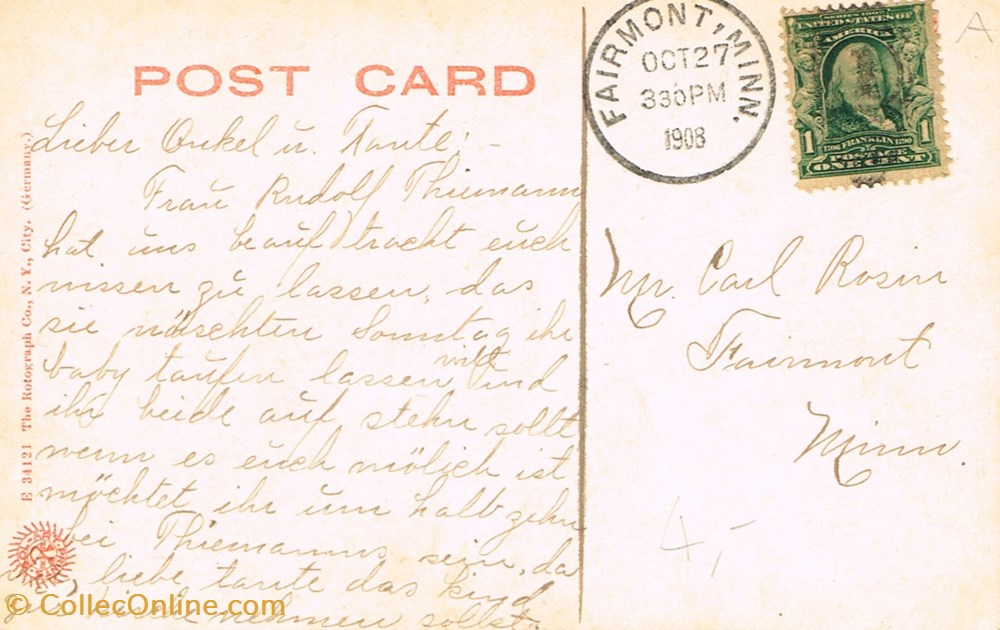 POST CARD
FAIRMONT, MINN.
OCT 27
330 PM
1908
SERIES 1902
UNITED STATES OF
AMERICA
1 1
1706 FRANKLIN 1790
POSTAGE
ONE CENT
A
Lieber Onkel u. Tante; -
Frau Rudolf Thiemann
hat uns beauftracht euch
wissen zu lassen, das
sie näschten Sonntag ihr
baby taufen lassen will und
ihr beide auf stehn sollt
wenn es euch mölich ist
möchtet ihr um halb zehn
bei Thiemanns sein, da
liebe tante das kind
nehmen sollst.
Mr. Carl Rosin
Fairmont
Minn.
4,-
E 34121 The Rotograph Co., N. Y., City. (Germany.)
© CollecOnline.com